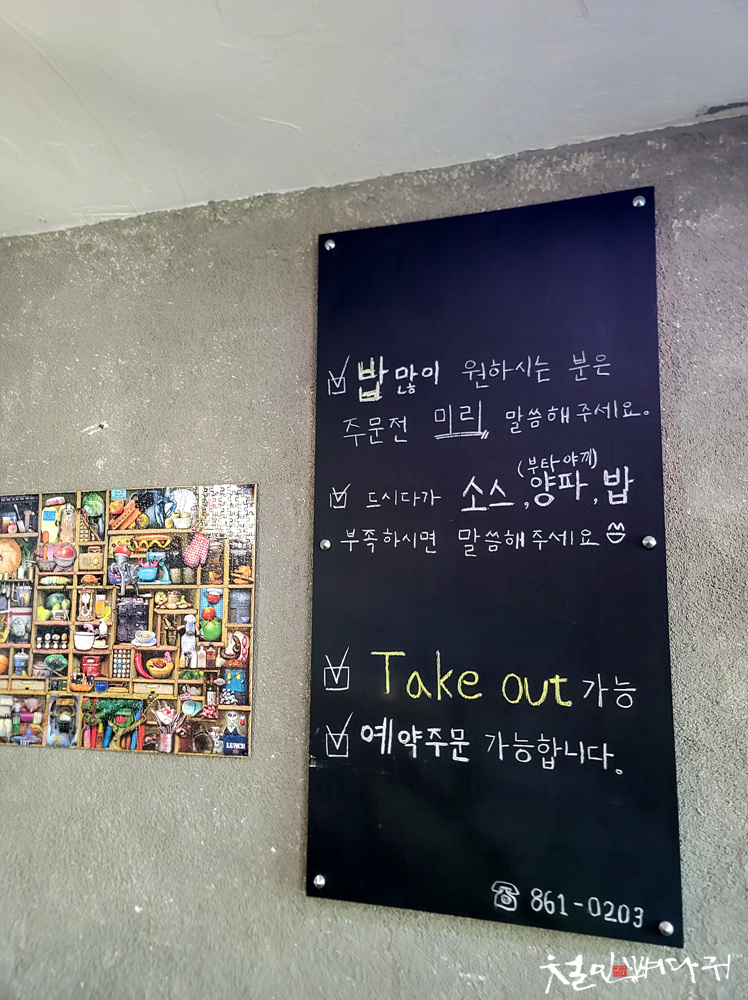 밥 많이 원하시는 분은
주문전 미리 말씀해주세요.
(부타야끼)
드시다가 소스, 양파, 밥
부족하시면 말씀해주세요
Take out 가능
예약주문 가능합니다.
☎ 861-0203
LUNCH
철인뼈다귀™